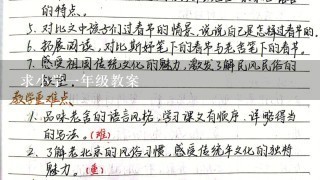 的特点。
5. 对比文中孩子们过春节的情景,说说自己是怎样过春节的。
6. 拓展阅读,对比斯好笔下的春节与老舍笔下的春节。
7. 感受祖国传统文化的魅力,激发了解民风民俗的
求小学一年级教案
教学重难点、
1. 品味老舍的语言风格,学习课文有顺序、详略得当
的写法。(难)
2. 了解老北京的风俗习惯,感受传统年文化的独特
魅力。(重)